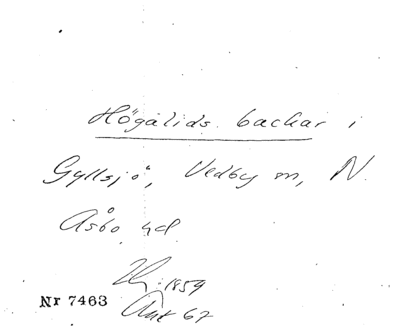 Högalids backar i
Gyllsjö, Vedby sn, N.
Åsbo hd
1859
Nr 7463
Ant 67